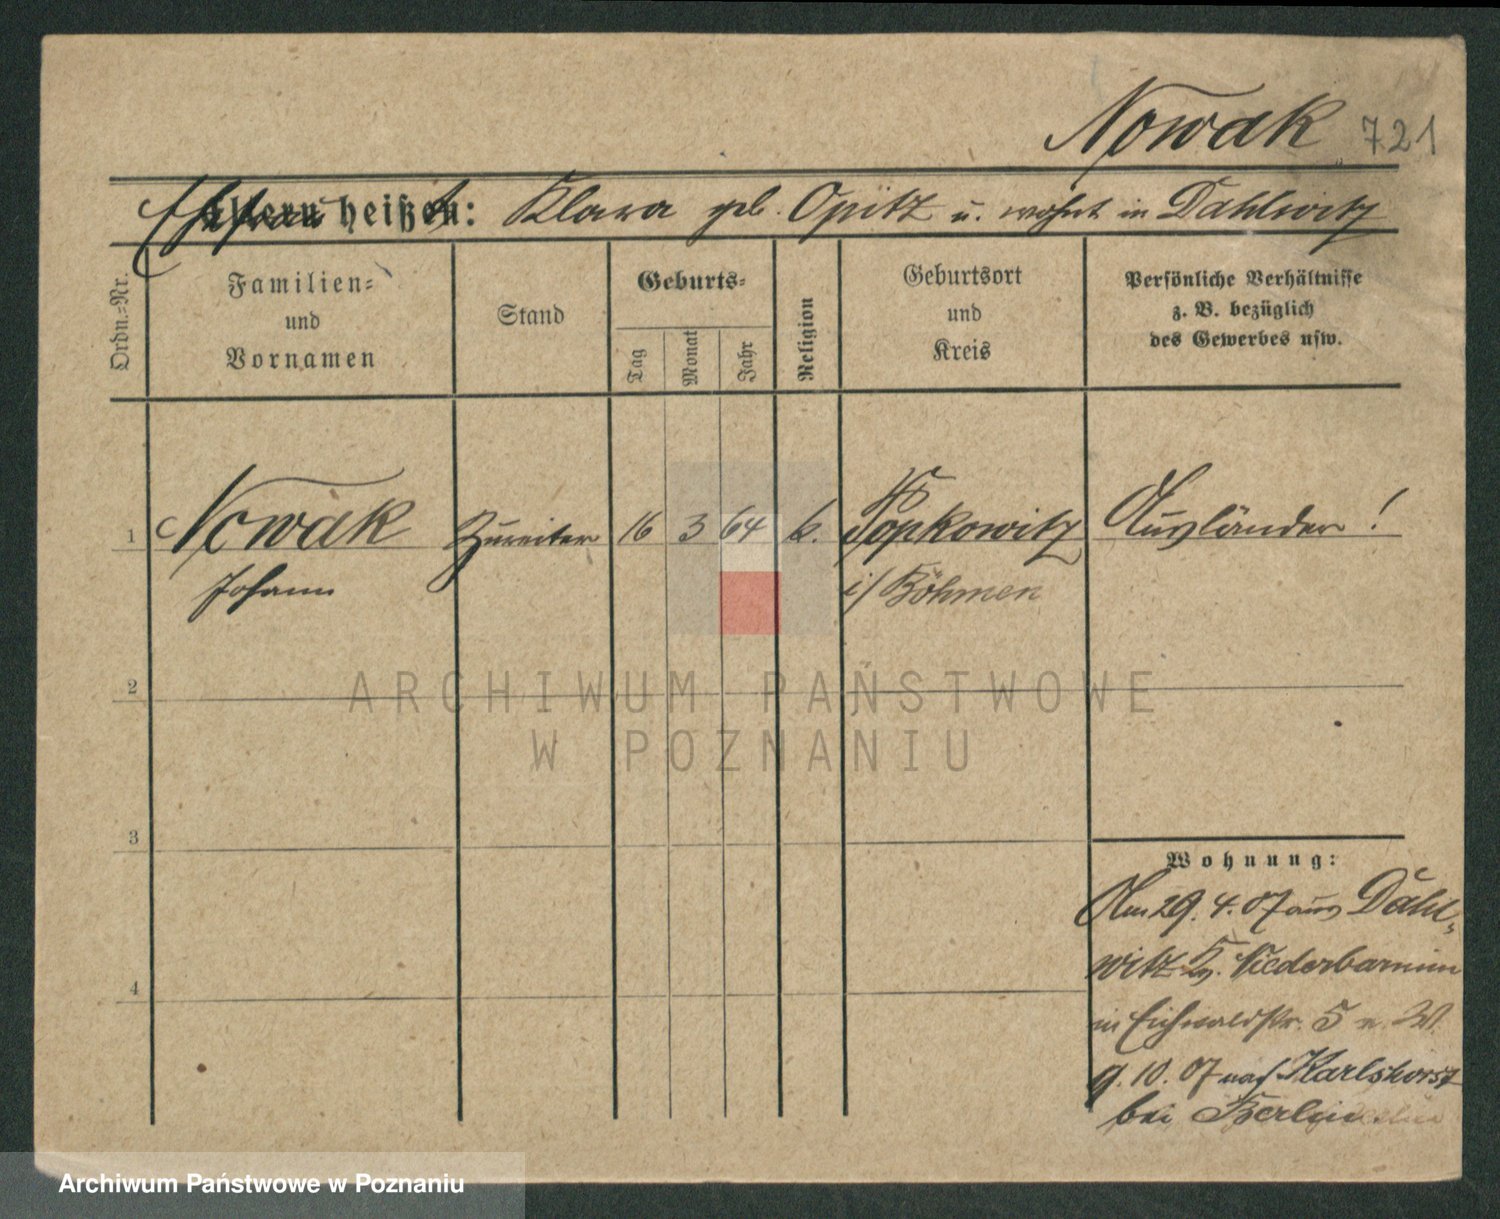 Nowak 721
Ehefrau heißt: Klara geb. Opitz u. wohnt in Dahlwitz
Ordn.-Nr.
Familien-
und
Vornamen
Stand
Geburts-
Tag
Monat
Jahr
Religion
Geburtsort
und
Kreis
Persönliche Verhältnisse
z. B. bezüglich
des Gewerbes usw.
1 Nowak Zureiter 16 3 64 k. Popkowitz Ausländer!
Johann i/Böhmen
2
ARCHIWUM PAŃSTWOWE
W POZNANIU
3
Wohnung:
Am 29. 4. 07 aus Dahl-
witz Kr. Niederbarnim
in Eichwaldstr. 5 
9. 10. 07 nach Karlshorst
bei Berlin
4
Archiwum Państwowe w Poznaniu